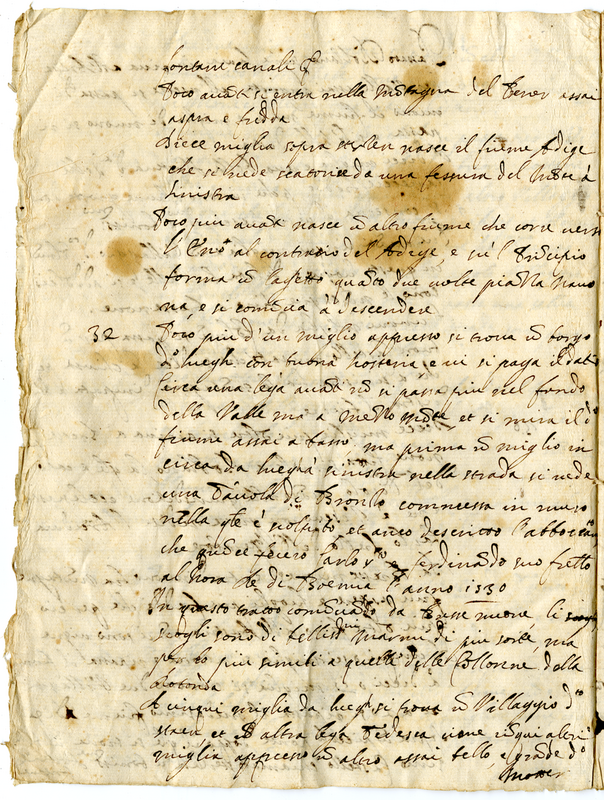 fontane canali &
Poco avãti si entra nella mõtagna del Prener assai
aspra e fredda
Diece miglia sopra nasce il fiume Adige
che si vede scatorire da una fessura del mõte à
sinistra
Poco più avãti nasce ũ altro fiume che corre verso
l' Eno al contrario del Adige, e nel Principio
forma ũ laghetto quãto due volte piazza navo
na, e si comĩcia à descendere
32 Poco più d'un miglio appresso si trova ũ borgo
dº luegh con buona hosteria e vi si paga il datio
circa una lega avãti nõ si passa più nel fondo
della Valle ma a mezzo mõte, et si mira il dº
fiume assai a basso, ma prima ũ miglio in
circa da luegh à sinistra nella strada si vede
una Tavola di Bronzo commessa in muro
nella qle è scolpito, et anco descritto l'abbocca
che fecero Carlo Vto e Ferdinãdo suo frello
al hora Re di Boemia l'anno 1530
In questo tratto comĩciãdo da li
scogli sono di bellissimi marmi di più sorte, ma
per lo più simili a quelli delle Collonne della
Rotonda
A cinque miglia da luegh si trova ũ Villaggio dº
et ũ altra lega Tedesca cioè cinque altri
miglia appresso ũ altro assai bello e grãde dº